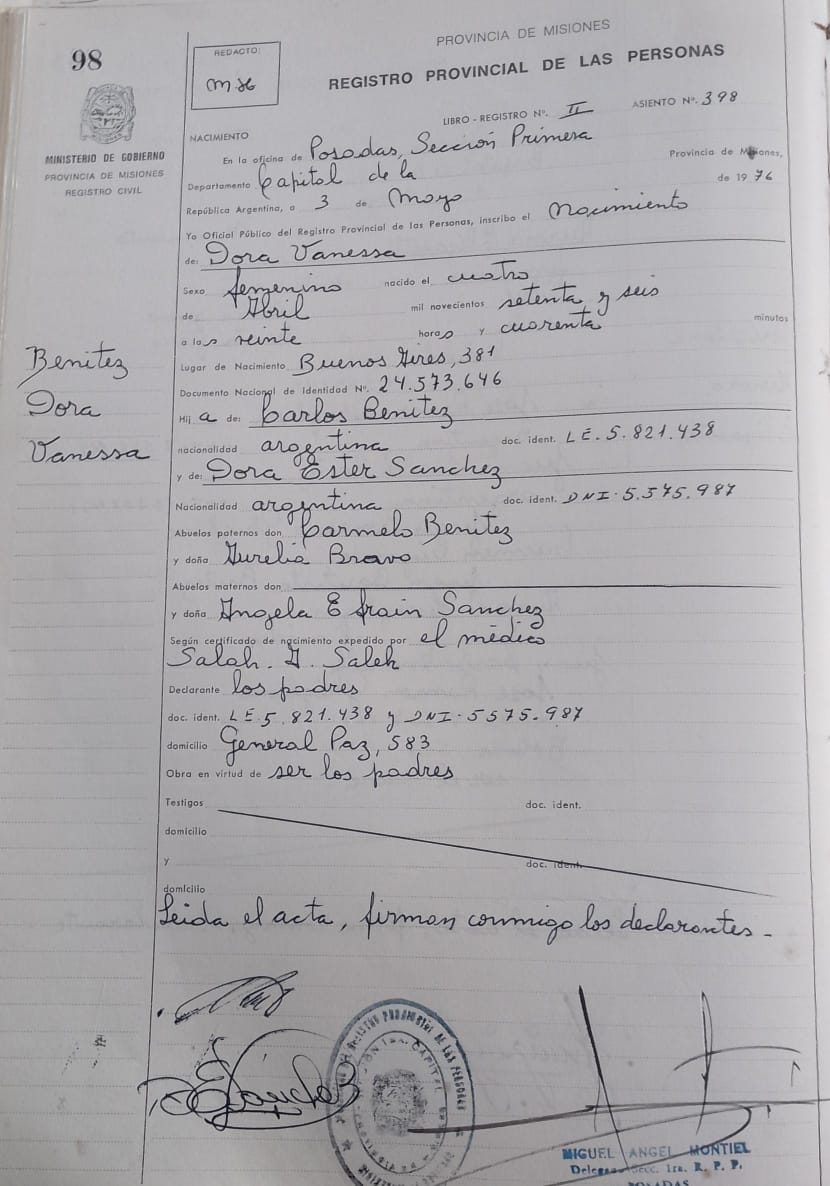 98
REDACTO:
PROVINCIA DE MISIONES
REGISTRO PROVINCIAL DE LAS PERSONAS
LIBRO - REGISTRO Nº. II ASIENTO Nº. 398
MINISTERIO DE GOBIERNO
PROVINCIA DE MISIONES
REGISTRO CIVIL
NACIMIENTO
En la oficina de Posadas, Sección Primera
Departamento Capital de la Provincia de Misiones,
República Argentina, a 3 de Mayo de 1976
Yo Oficial Público del Registro Provincial de las Personas, inscribo el Nacimiento
de: Dora Vanessa
Sexo femenino nacido el cuatro
de Abril mil novecientos setenta y seis
a las veinte horas y cuarenta minutos
Lugar de Nacimiento Buenos Aires, 381
Documento Nacional de Identidad Nº. 24.573.646
Hij a de: Carlos Benitez
nacionalidad argentina doc. ident. LE. 5.821.438
y de: Dora Ester Sanchez
Nacionalidad argentina doc. ident. DNI. 5.575.987
Abuelos paternos don Carmelo Benitez
y doña Aurelia Bravo
Abuelos maternos don
y doña Angela Efrain Sanchez
Según certificado de nacimiento expedido por el médico
Salah. A. Saleh
Declarante los padres
doc. ident. LE. 5.821.438 y DNI. 5575.987
domicilio General Paz, 583
Obra en virtud de ser los padres
Testigos doc. ident.
domicilio
y doc. ident.
domicilio
Leida el acta, firman conmigo los declarantes.-
Benitez
Dora
Vanessa
MIGUEL ANGEL MONTIEL
Delegado Secc. 1ra. R. P. P.
POSADAS